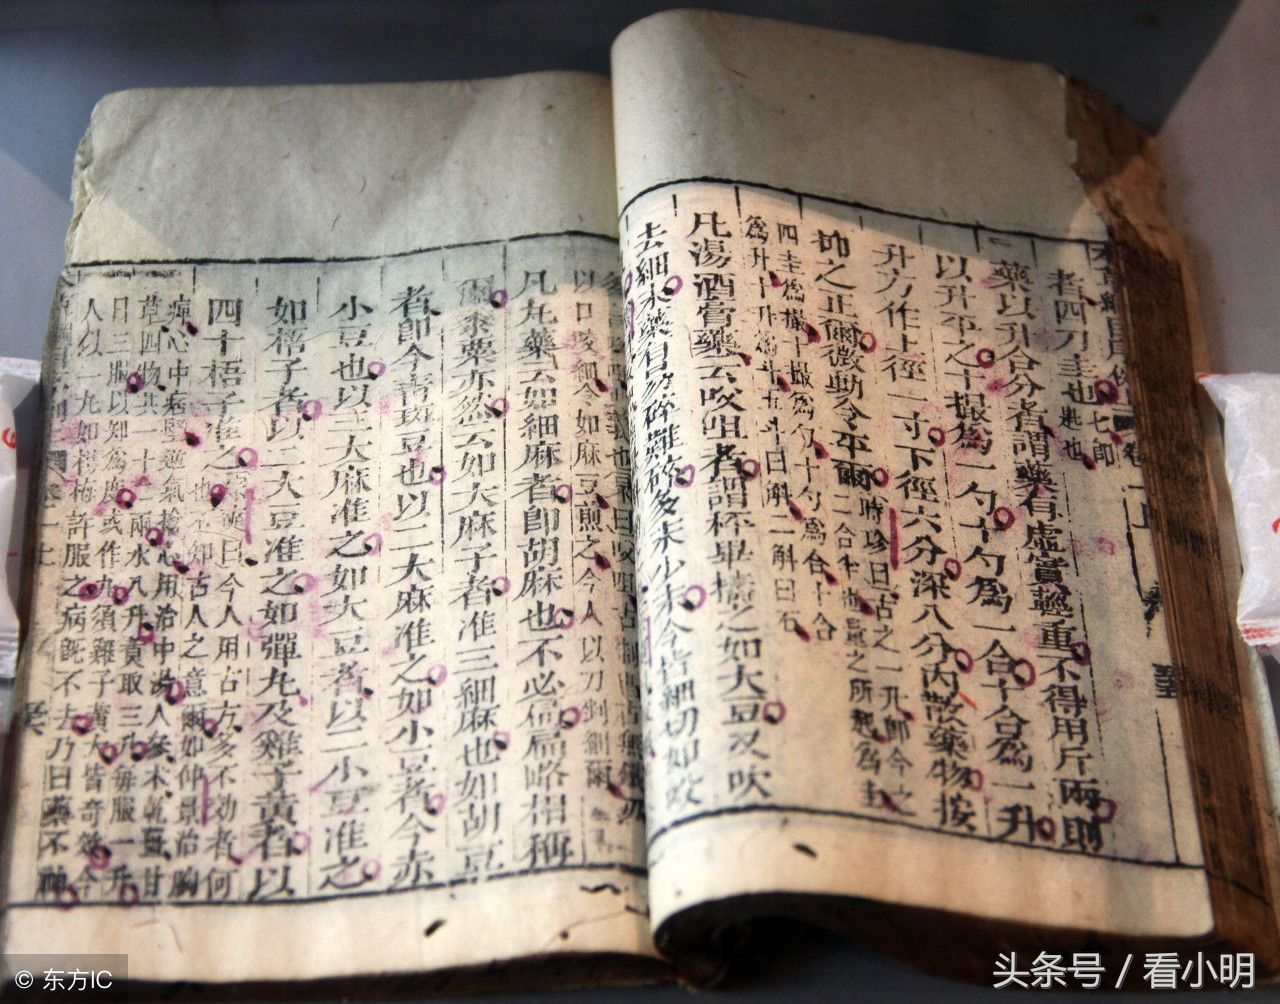 者四刀圭也匕即
匙也
藥以升合分者謂藥有虛實輕重不得用斤兩則
以升平之十撮為一勺十勺為一合十合為一升
升方作上徑一寸下徑六分深八分內散藥物按
抑之正爾微動令平爾時珍曰古之一升即今之
二合半也量之所起為圭
四圭為撮十撮為勺十勺為合十合
為升十升為斗五斗曰斛二斛曰石
凡湯酒膏藥云㕮咀者謂秤畢擣之如大豆又吹
去細末藥有易碎難碎多末少末今皆細切如㕮
以口咬細令如麻豆煎之今人以刀剉細爾
凡丸藥云如細麻者即胡麻也不必扁扁略相稱
爾黍粟亦然云如大麻子者准三細麻也如胡豆
者即今青斑豆也以二大麻准之如小豆者今赤
小豆也以三大麻准之如大豆者以二小豆准之
如梧子者以二大豆准之如彈丸及雞子黃者以
四十梧子准之
曰今人用古方多不効者何
也不知古人之意爾如仲景治胸
痺心中痞堅逆氣搶心用治中湯人參朮乾薑甘
草四物共一十二兩水八升煮取三升每服一升
日三服以知為度或作丸須雞子黃大皆奇效今
人以一丸如楊梅許服之病既不去乃曰藥不神
© 东方IC
头条号 / 看小明